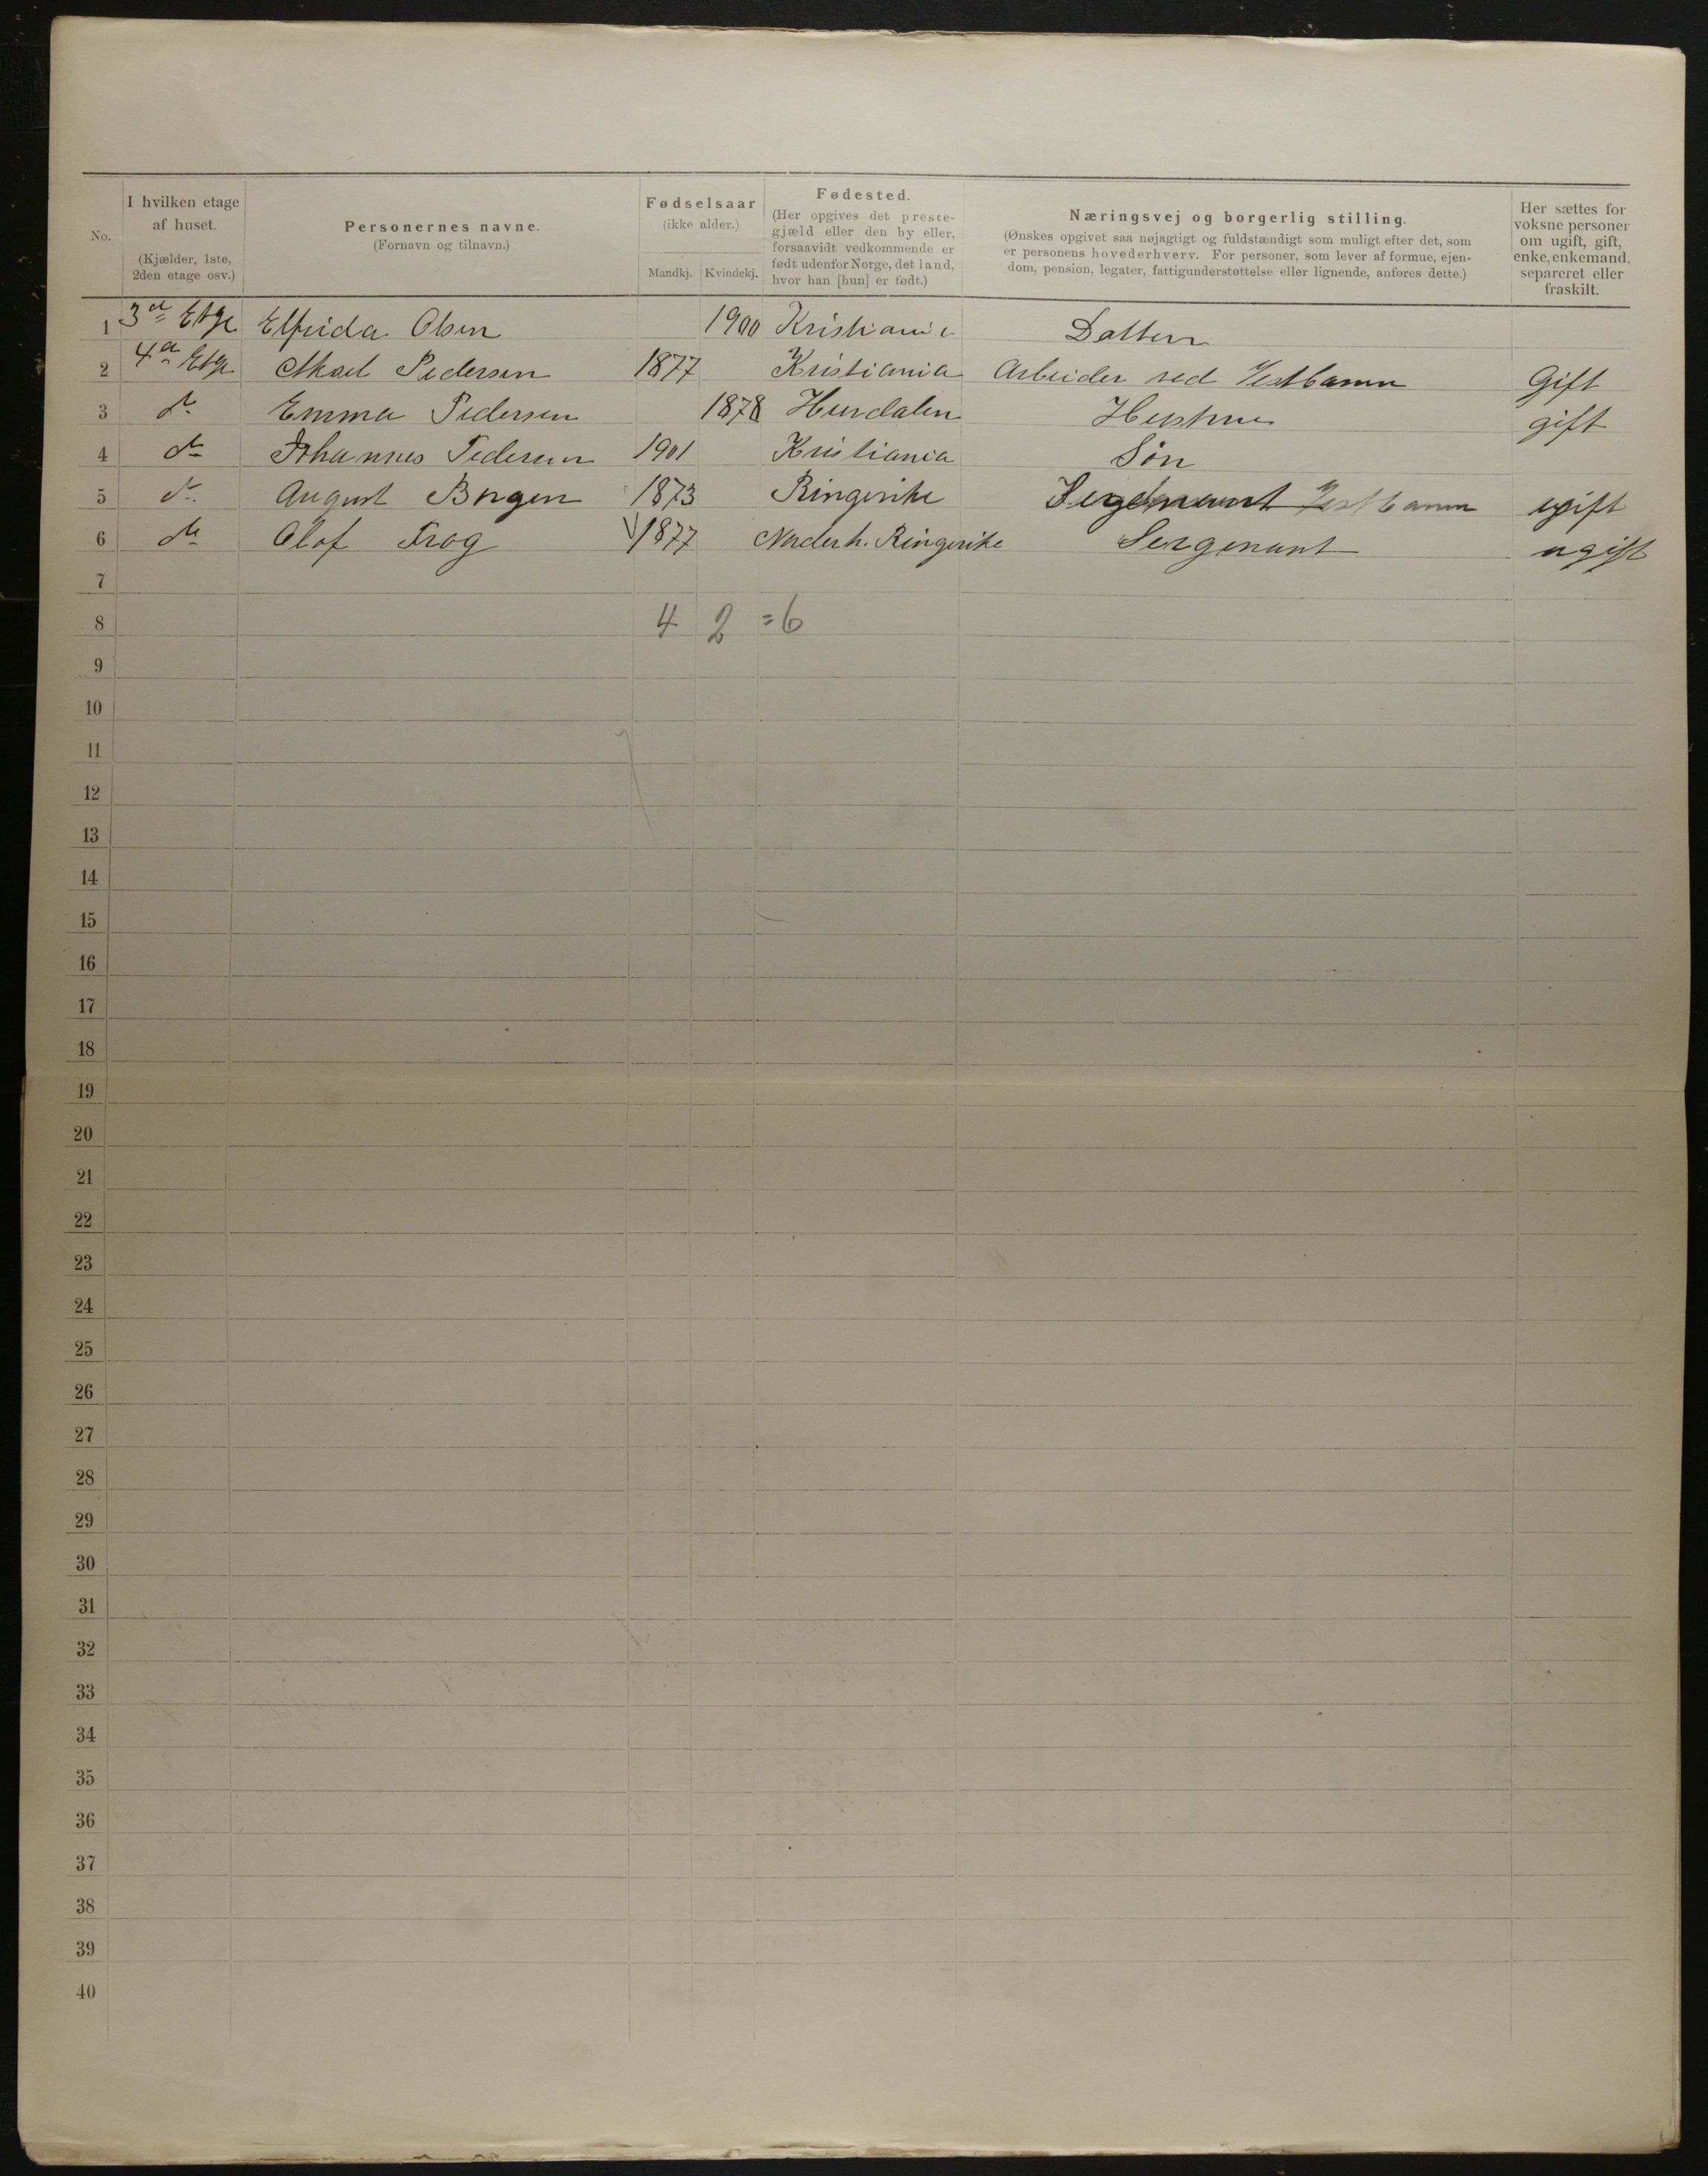 No. I hvilken etage af huset. (Kjælder, 1ste, 2den etage osv.) Personernes navne. (Fornavn og tilnavn.) Fødselsaar (ikke alder.) Mandkj. Kvindekj. Fødested. (Her opgives det prestegjæld eller den by eller, forsaavidt vedkommende er født udenfor Norge, det land, hvor han [hun] er født.) Næringsvej og borgerlig stilling. (Ønskes opgivet saa nøjagtigt og fuldstændigt som muligt efter det, som er personens hovederhverv. For personer, som lever af formue, ejendom, pension, legater, fattigunderstøttelse eller lignende, anføres dette.) Her sættes for voksne personer om ugift, gift, enke, enkemand, separeret eller fraskilt.
1 3d Etge Elfrida Olsen 1900 Kristiania Datter
2 4d Etge Pedersen 1877 Kristiania Arbeider ved Vestbanen Gift
3 do Emma Pedersen 1878 Hurdalen Hustru gift
4 do Johannes Pedersen 1901 Kristiania Søn
5 do August Borgen 1873 Ringerike Vestbanen ugift
6 do Olaf Frog 1877 Norderh. Ringerike Sergenant ugift
7
8 4 2 =6
9
10
11
12
13
14
15
16
17
18
19
20
21
22
23
24
25
26
27
28
29
30
31
32
33
34
35
36
37
38
39
40